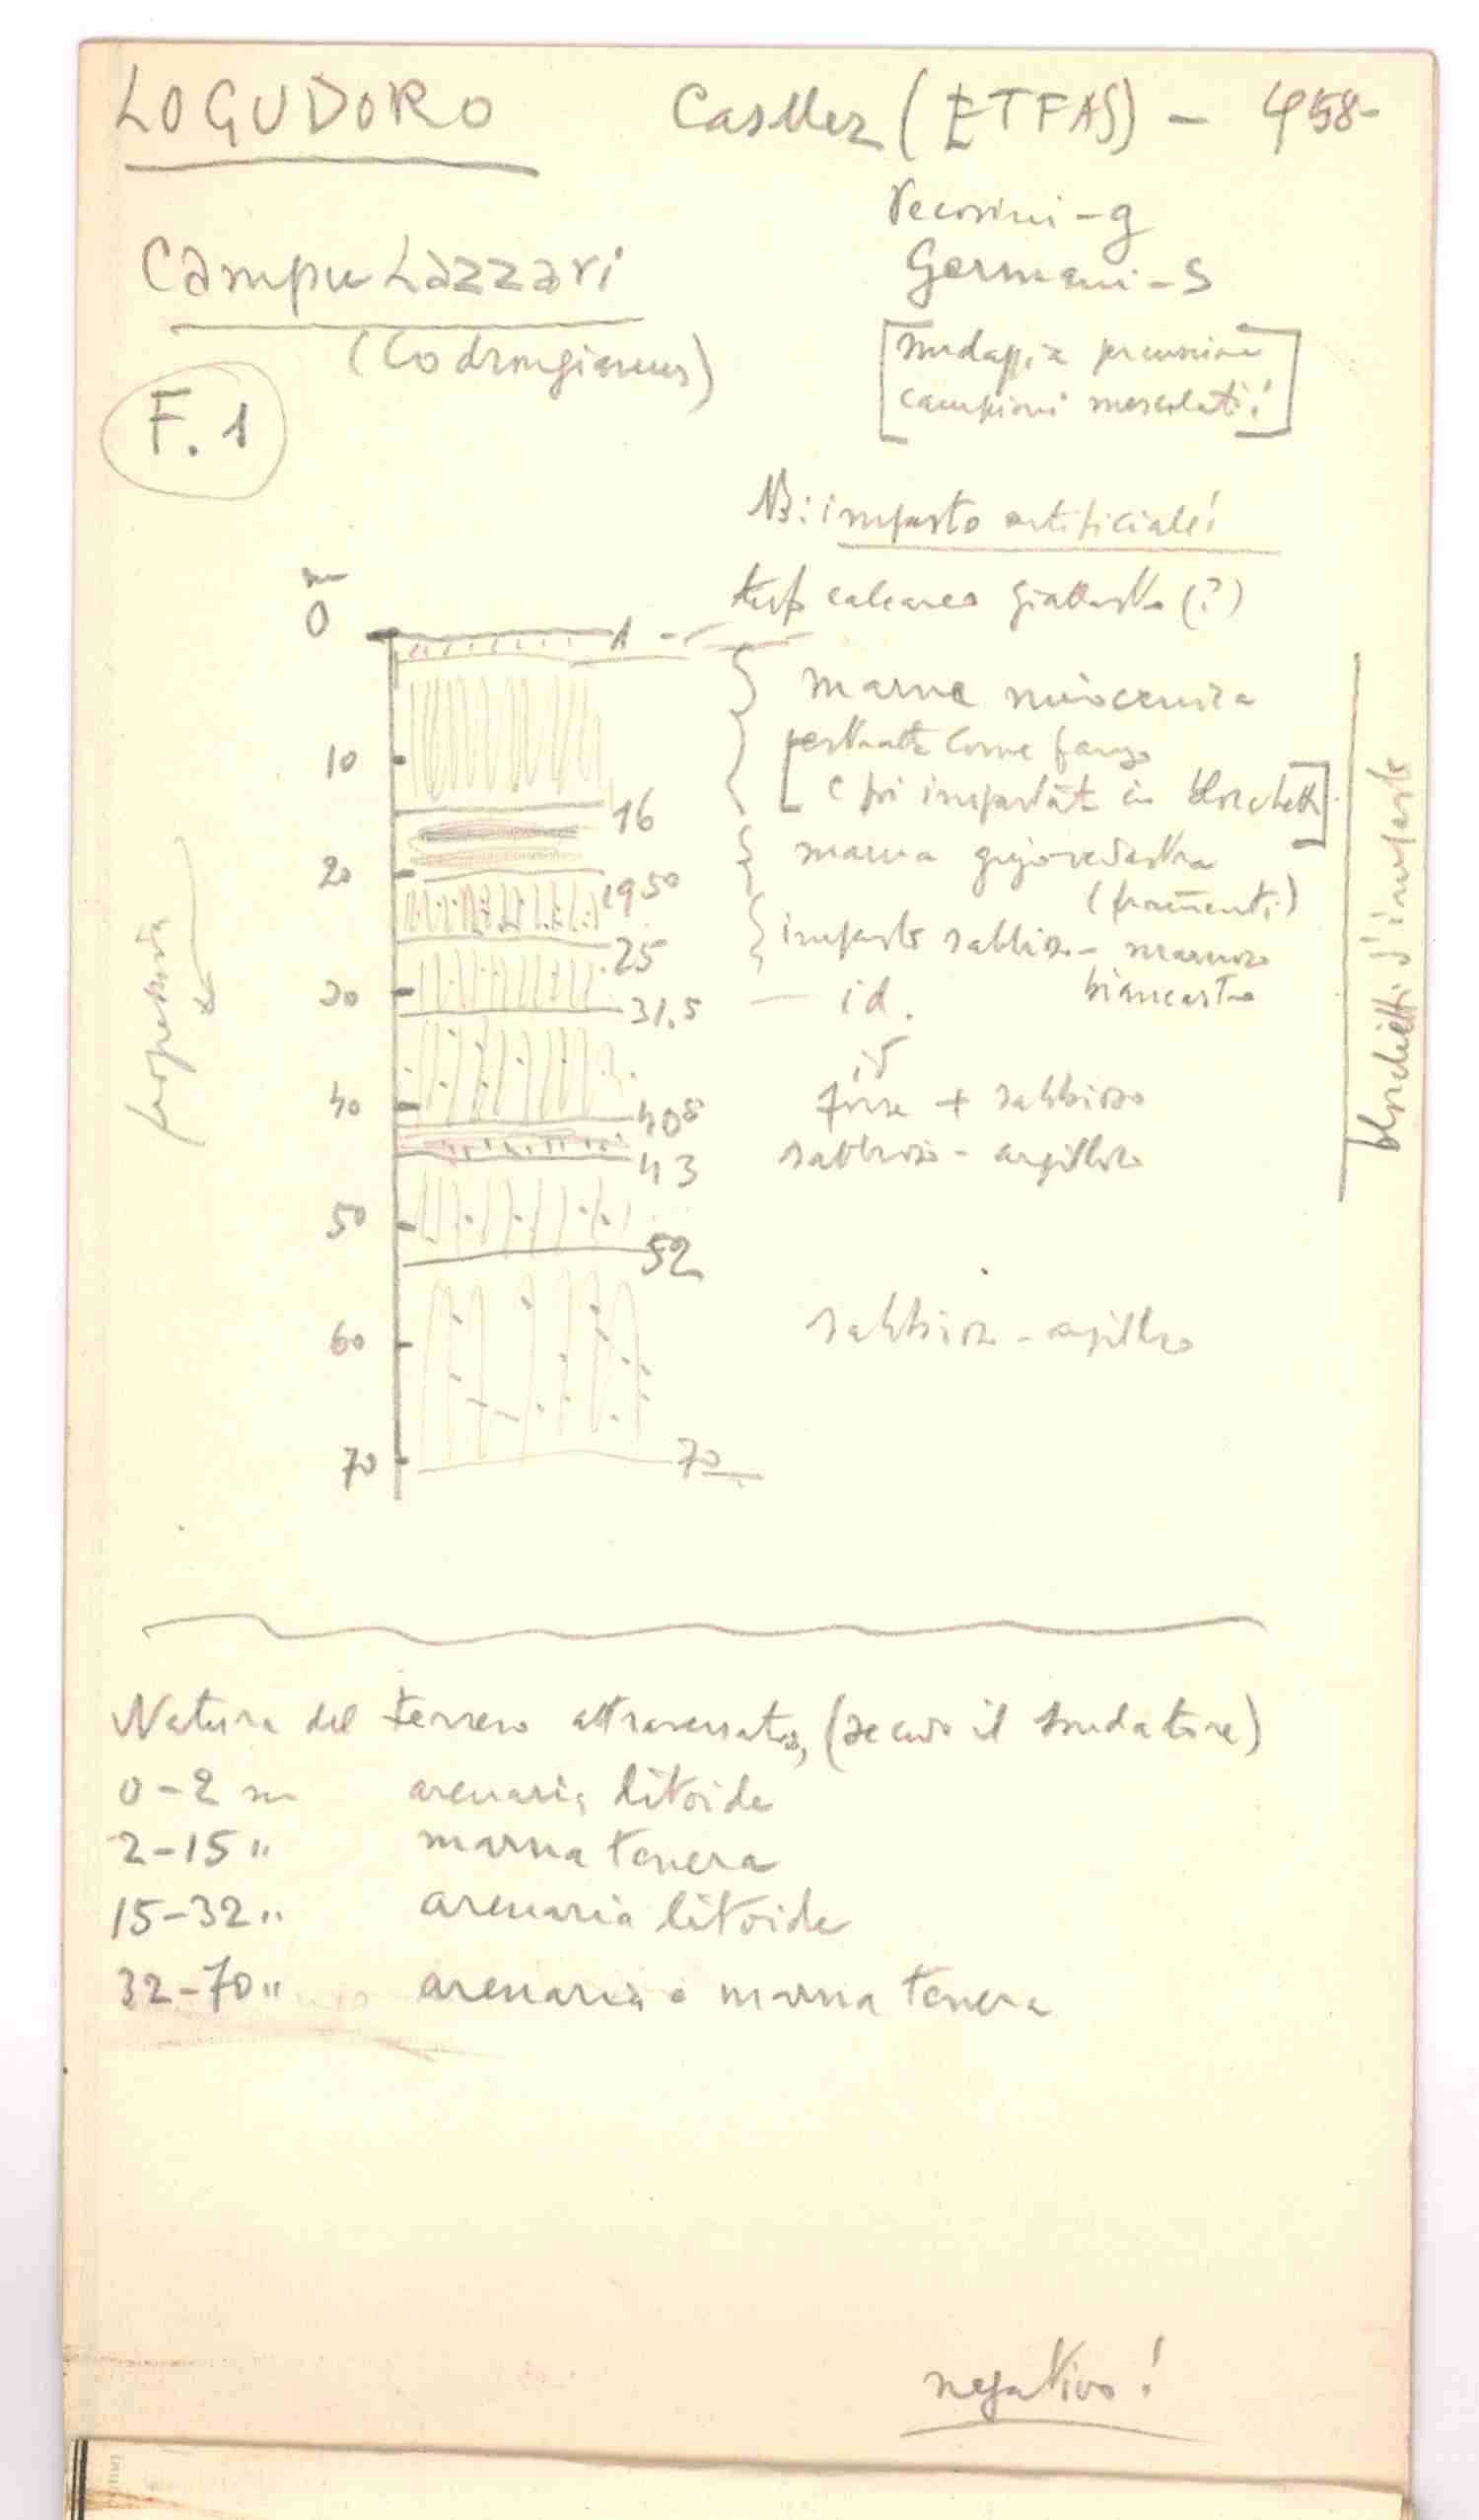 LOGUDORO (ETFAS) -
Campu Lazzari
Germani - S
(Codrongianus)
[sondaggio a percussione
campioni mescolati!]
F.1
NB: impasto artificiale!
m
0
1
tufo calcareo giallastro (?)
marne mioceniche
10
pestate come fango
[e poi impastate in blocchetti]
16
marna grigioverdastra
20
(frammenti)
19 50
impasto sabbioso - marnoso
25
biancastro
30
31.5
id.
id
40
40 8
forse + sabbioso
43
sabbioso - argilloso
50
52
60
sabbioso - argilloso
70
70
blocchetti d'impasto
Natura del terreno attraversato, (secondo il sondatore)
0-2 m arenaria litoide
2-15 " marna tenera
15-32 " arenaria litoide
32-70 " arenaria e marna tenera
negativo!